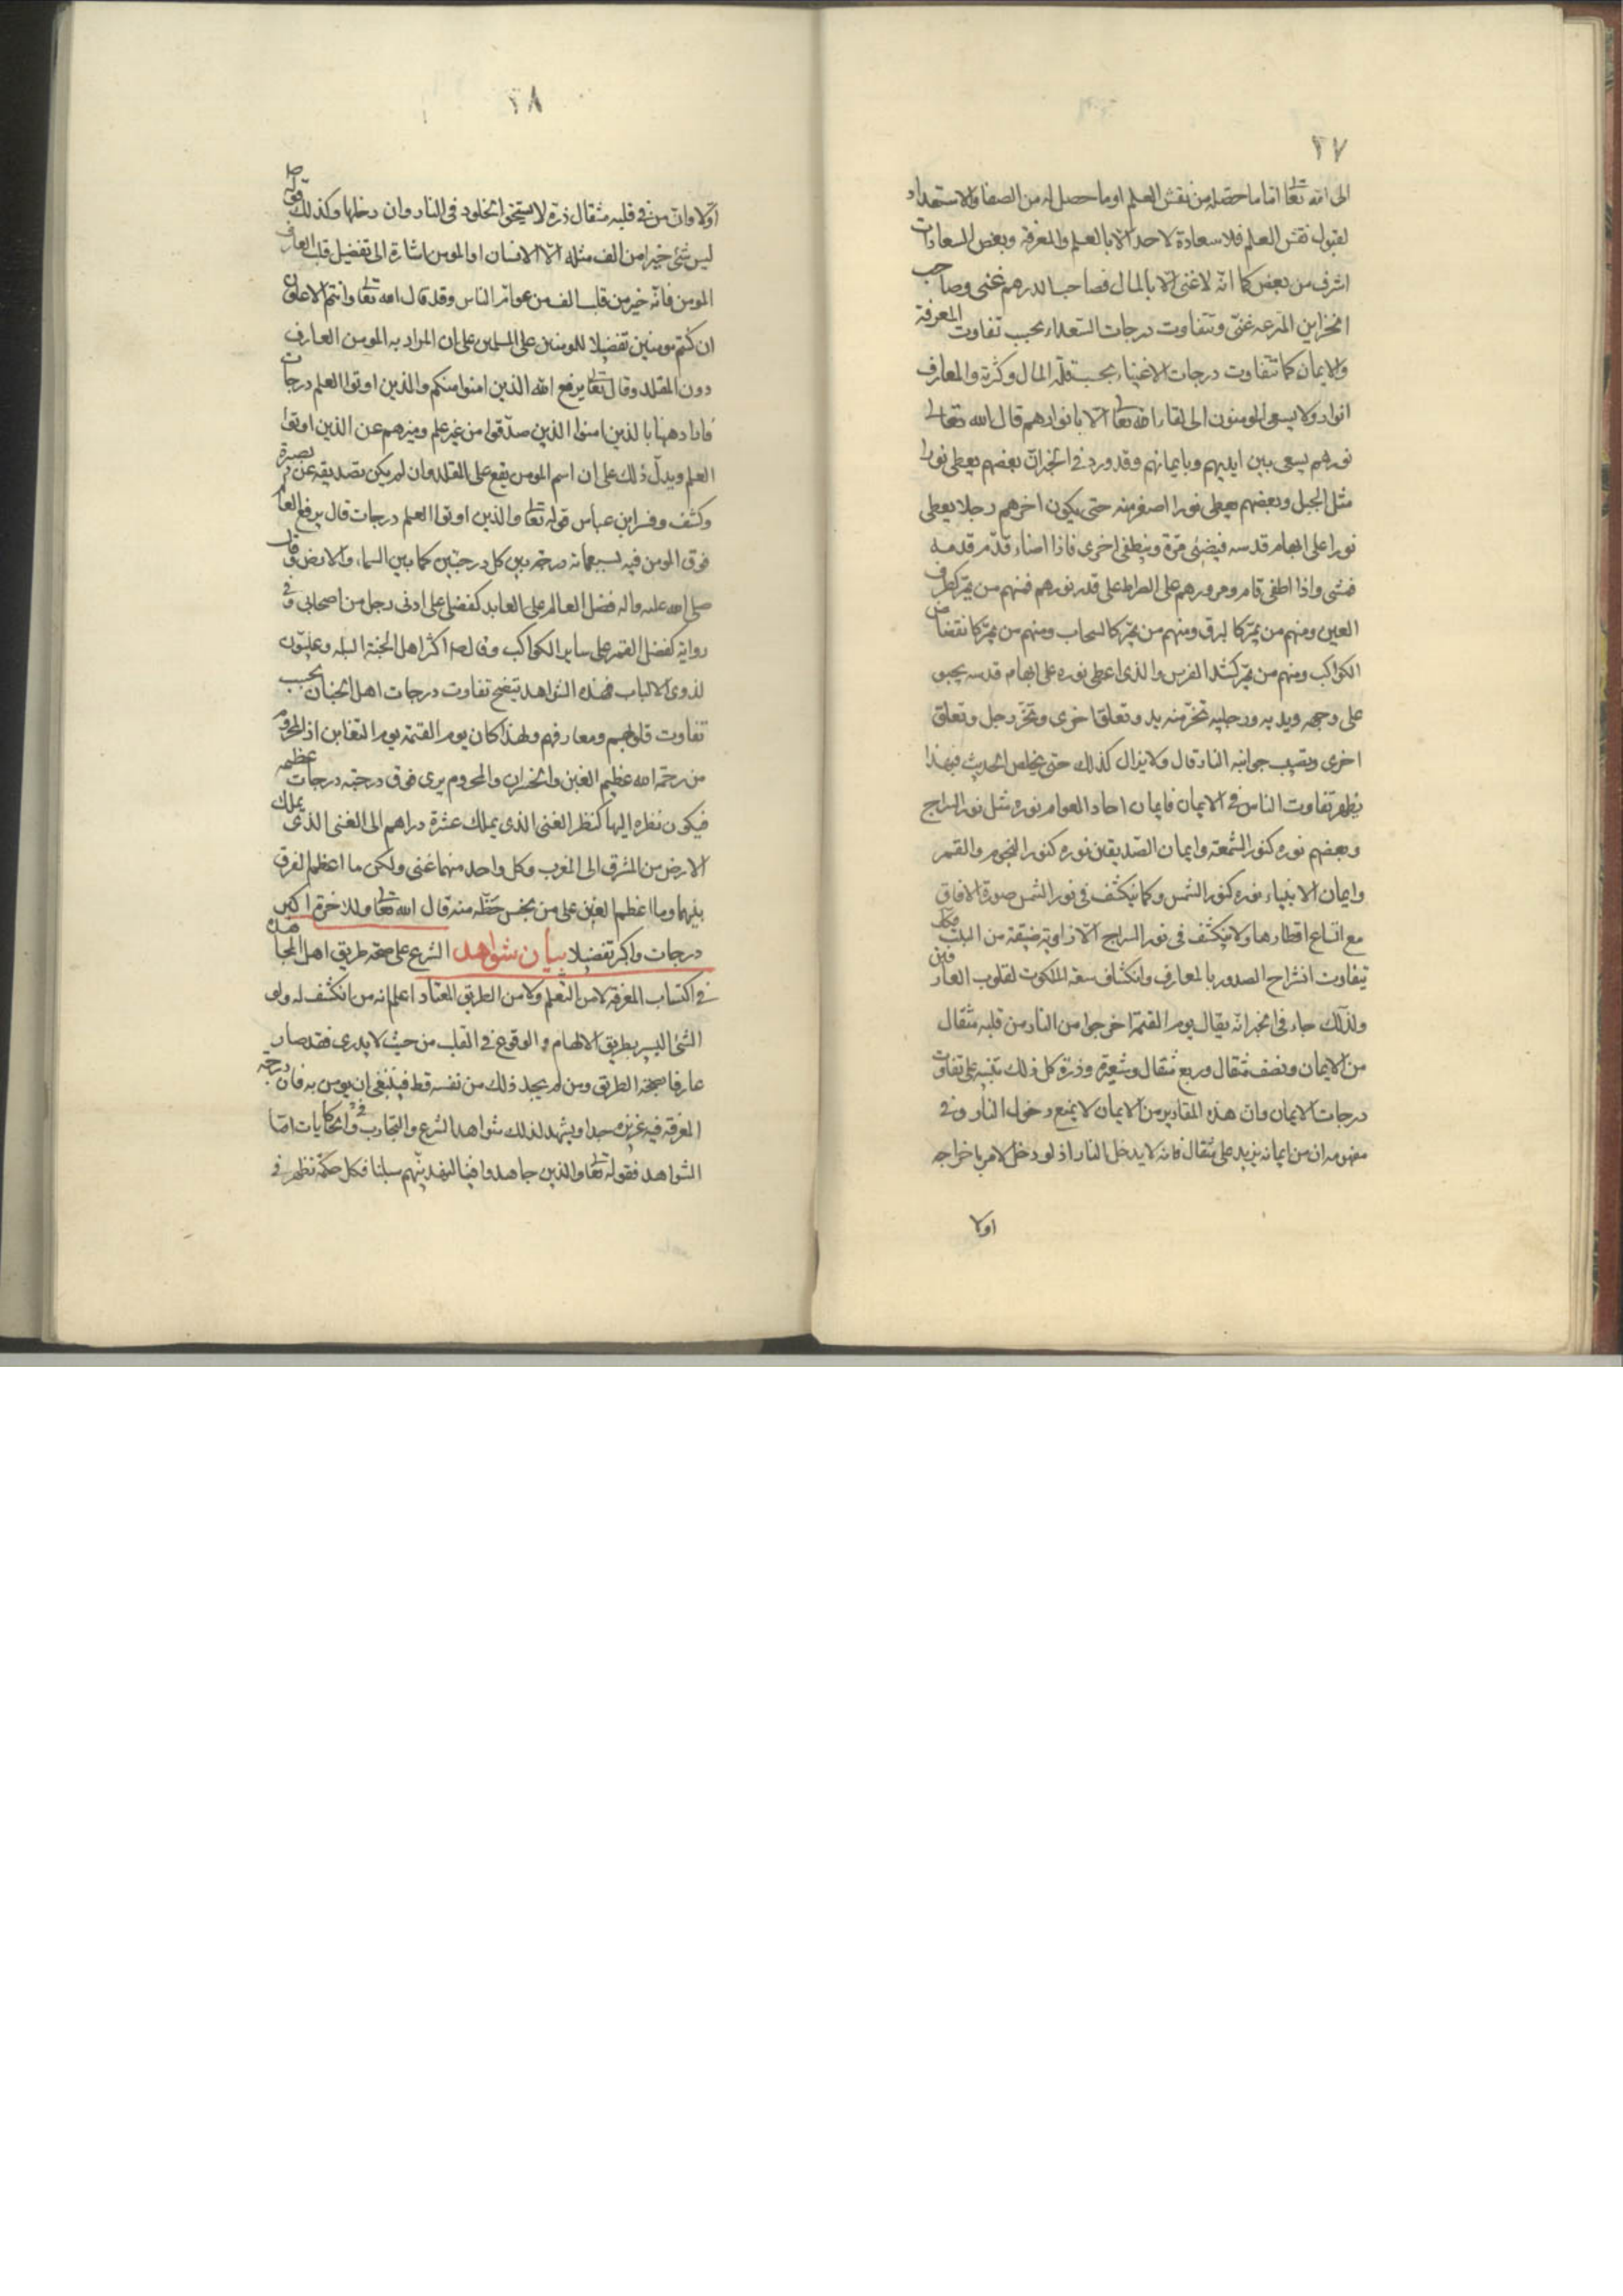 ٢٧
الى الله تعا اما ما حصله من نفس العلم او ما حصل له من الصفا والاستعداد
لقبول نفس العلم فلا سعادة لاحد الا بالعلم والمعرفة وبعض السعادات
اشرف من بعض كما انه لا غنى الا بالمال فصاحب الدرهم غنى وصاحب
الخزاين المترعه غنى وتتفاوت درجات السعداء بحسب تفاوت المعرفة
والايمان كما تتفاوت درجات الاغنياء بحسب قلة المال وكثرة والمعارف
انوار ولا يسعى المومنون الى لقاء الله تعا الا بانوارهم قال الله تعالى
نورهم يسعى بين ايديهم وبايمانهم وقد ورد في الخبر ان بعضهم يعطى نورا
مثل الجبل وبعضهم يعطى نورا اصغر منه حتى يكون اخرهم رجلا يعطى
نورا على ابهام قدمه فيضئى مرة وينطفى اخرى فاذا اضاء قدم قدمه
فمشى واذا اطفى قام ومرورهم على الصراط على قدر نورهم فمنهم من يمر كطرف
العين ومنهم من يمر كالبرق ومنهم من يمر كالسحاب ومنهم من يمر كانقضاض
الكواكب ومنهم من يمر كشد الفرس والذى اعطى نوره على ابهام قدمه يحبو
على وجهه ويديه ورجليه تخر منه يد وتعلق اخرى وتخر رجل وتعلق
اخرى وتصيب جوانبه النار قال ولا يزال كذلك حتى يخلص الحديث فبهذا
يظهر تفاوت الناس في الايمان فايمان احاد العوام نوره مثل نور السراج
وبعضهم نوره كنور الشمعة وايمان الصديقين نوره كنور النجوم والقمر
وايمان الانبياء نوره كنور الشمس وكما ينكشف في نور الشمس صورة الافاق
مع اتساع اقطارها ولا ينكشف في نور السراج الا زاوية ضيقة من البيت فكذلك
تفاوت انشراح الصدور بالمعارف وانكشاف سعة الملكوت لقلوب العارفين
ولذلك جاء في الخبر انه يقال يوم القيمة اخرجوا من النار من قلبه مثقال
من الايمان ونصف مثقال وربع مثقال وشعيرة وذرة كل ذلك تنبيه على تفاوت
درجات الايمان وان هذه المقادير من الايمان لا يمنع دخول النار وفي
مفهومه ان من ايمانه يزيد على مثقال فانه لا يدخل النار اذ لو دخل لامر باخراجه
اولا
٢٨
اولا وان من في قلبه مثقال ذرة لا يستحق الخلود في النار وان دخلها وكذلك قوله ص
ليس شئ خيرا من الف مثله الا الانسان او المومن اشارة الى تفضيل قلب العارف
المومن فانه خير من قلب الف من عوام الناس وقد قال الله تعا وانتم الاعلون
ان كنتم مومنين تفضيلا للمومنين على المسلمين على ان المراد به المومن العارف
دون المقلد وقال تعا يرفع الله الذين امنوا منكم والذين اوتوا العلم درجات
فاراد ههنا بالذين امنوا الذين صدقوا من غير علم وميزهم عن الذين اوتوا
العلم ويدل ذلك على ان اسم المومن يقع على المقلد وان لم يكن تصديقه عن بصيرة
وكشف وفسر ابن عباس قوله تعا والذين اوتوا العلم درجات قال يرفع العالم
فوق المومن فيه بسبعمائة درجة بين كل درجتين كما بين السماء والارض وقال
صلى الله عليه واله فضل العالم على العابد كفضلى على ادنى رجل من اصحابى وفي
رواية كفضل القمر على ساير الكواكب وقال ص اكثر اهل الجنة البله وعليون
لذوى الالباب فبهذه الشواهد يتضح تفاوت درجات اهل الجنان بحسب
تفاوت قلوبهم ومعارفهم ولهذا كان يوم القيمة يوم التغابن اذ المحروم
من رحمة الله عظيم الغبن والخسران والمحروم يرى فوق درجته درجات عظيمه
فيكون نظره اليها كنظر الغنى الذى يملك عشرة دراهم الى الغنى الذى يملك
الارض من المشرق الى المغرب وكل واحد منهما غنى ولكن ما اعظم الفرق
بينهما وما اعظم الغبن على من بخس حظه منه قال الله تعا وللاخرة اكبر
درجات واكبر تفضيلا بيان شواهد الشرع على صحة طريق اهل المجاهده
في اكتساب المعرفة لا من التعلم ولا من الطريق المعتاد اعلم انه من انكشف له ولو
الشئ اليسير بطريق الالهام والوقوع في القلب من حيث لا يدرى فقد صار
عارفا بصحة الطريق ومن لم يجد ذلك من نفسه قط فينبغى ان يومن به فان درجة
المعرفة فيه عزيزه جدا ويشهد لذلك شواهد الشرع والتجارب والحكايات اما
الشواهد فقوله تعا والذين جاهدوا فينا لنهدينهم سبلنا فكل حكمة تظهر في